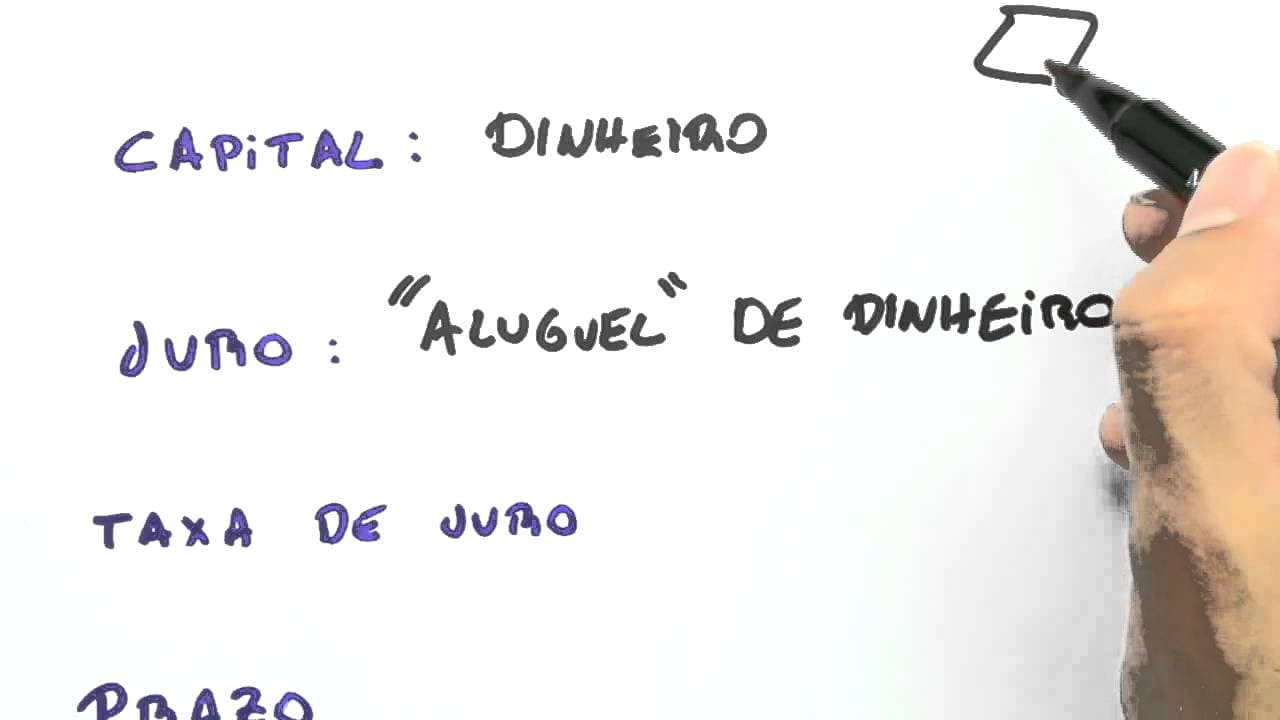 CAPiTAL: DINHEIRO
JURO: "ALUGUEL" DE DINHEiRO
TAXA DE JURO
PRAZO